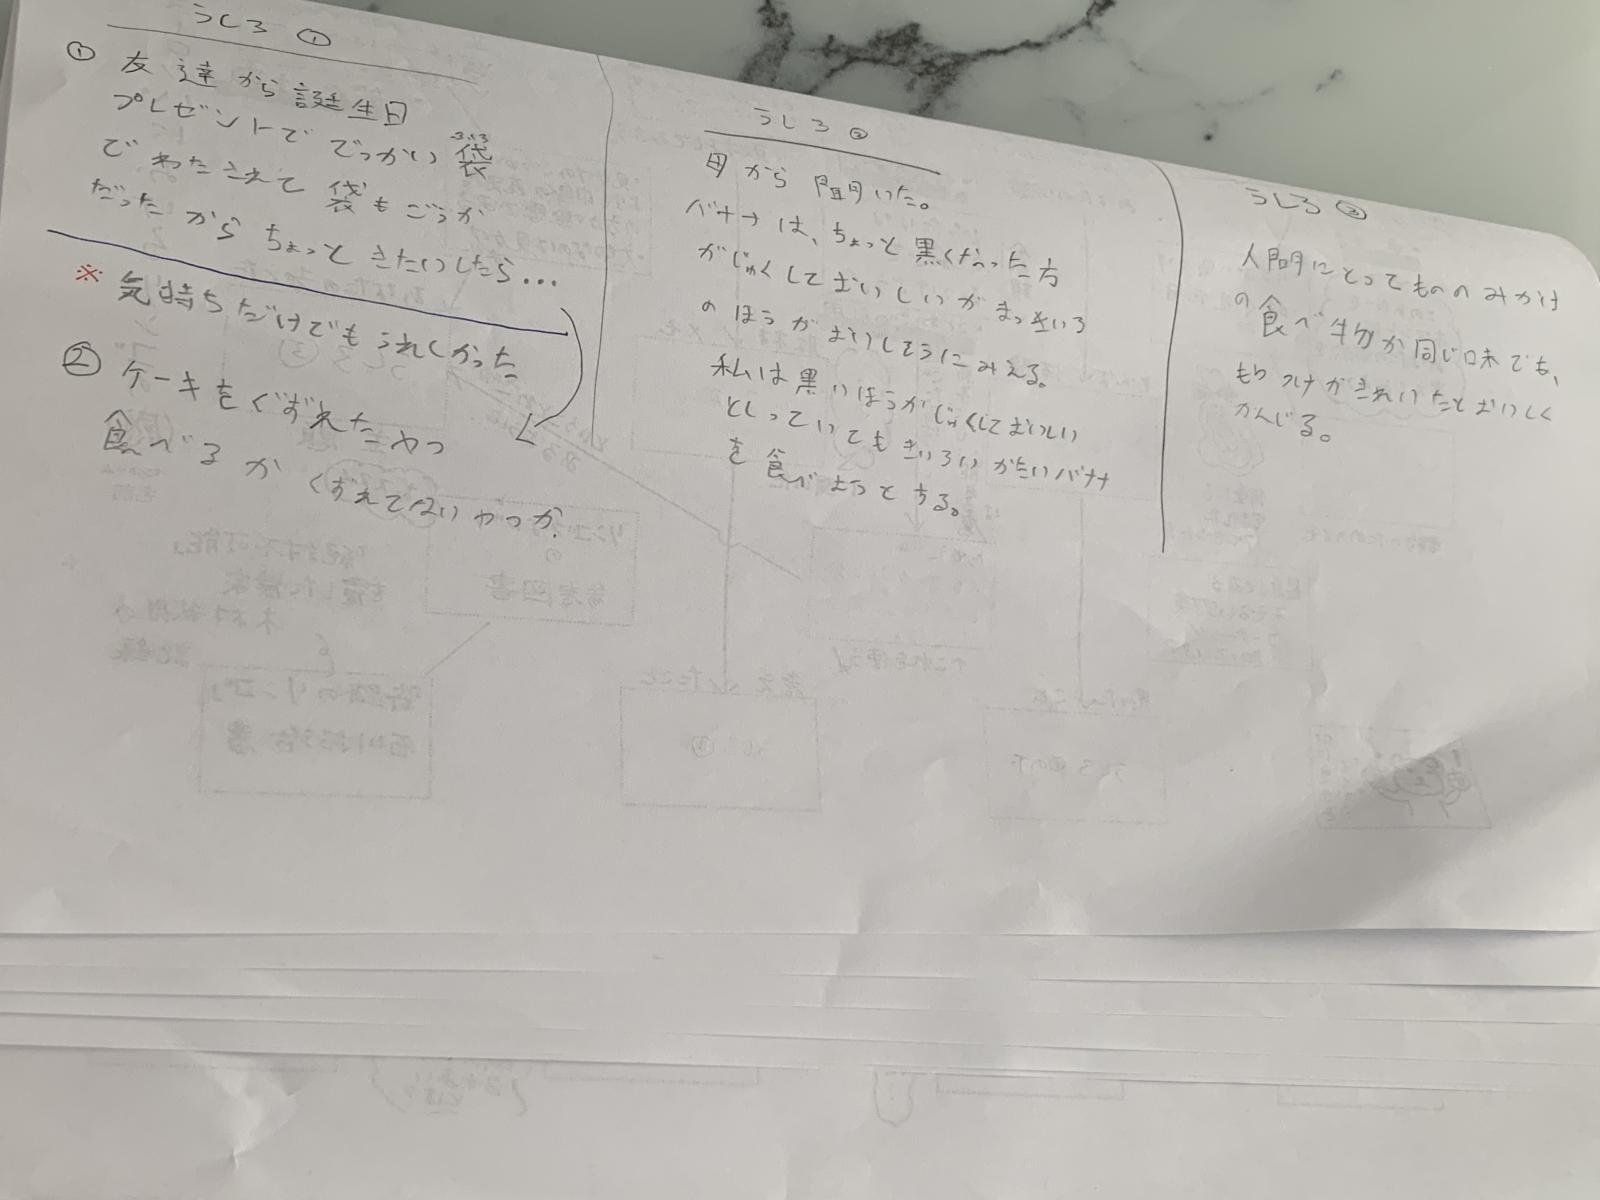 うしろ ①
① 友達から誕生日
プレゼントで でっかい 袋
ふくろ
で わたされて 袋も ごうか
だったから ちょっと きたいしたら…
※ 気持ちだけでもうれしかった
② ケーキを くずれた やつ
食べるか くずれてない やつか
うしろ ②
母から 聞いた。
バナナは、ちょっと 黒くなった方
がじゅくして おいしいが まっきいろ
の ほうが おいしそうにみえる。
私は 黒いほうが じゅくして おいしい
としっていても きいろい かたい バナナ
を 食べようと する。
うしろ ③
人間にとって ものの みかけ
の 食べ物が 同じ味でも、
もりつけが きれいだと おいしく
かんじる。